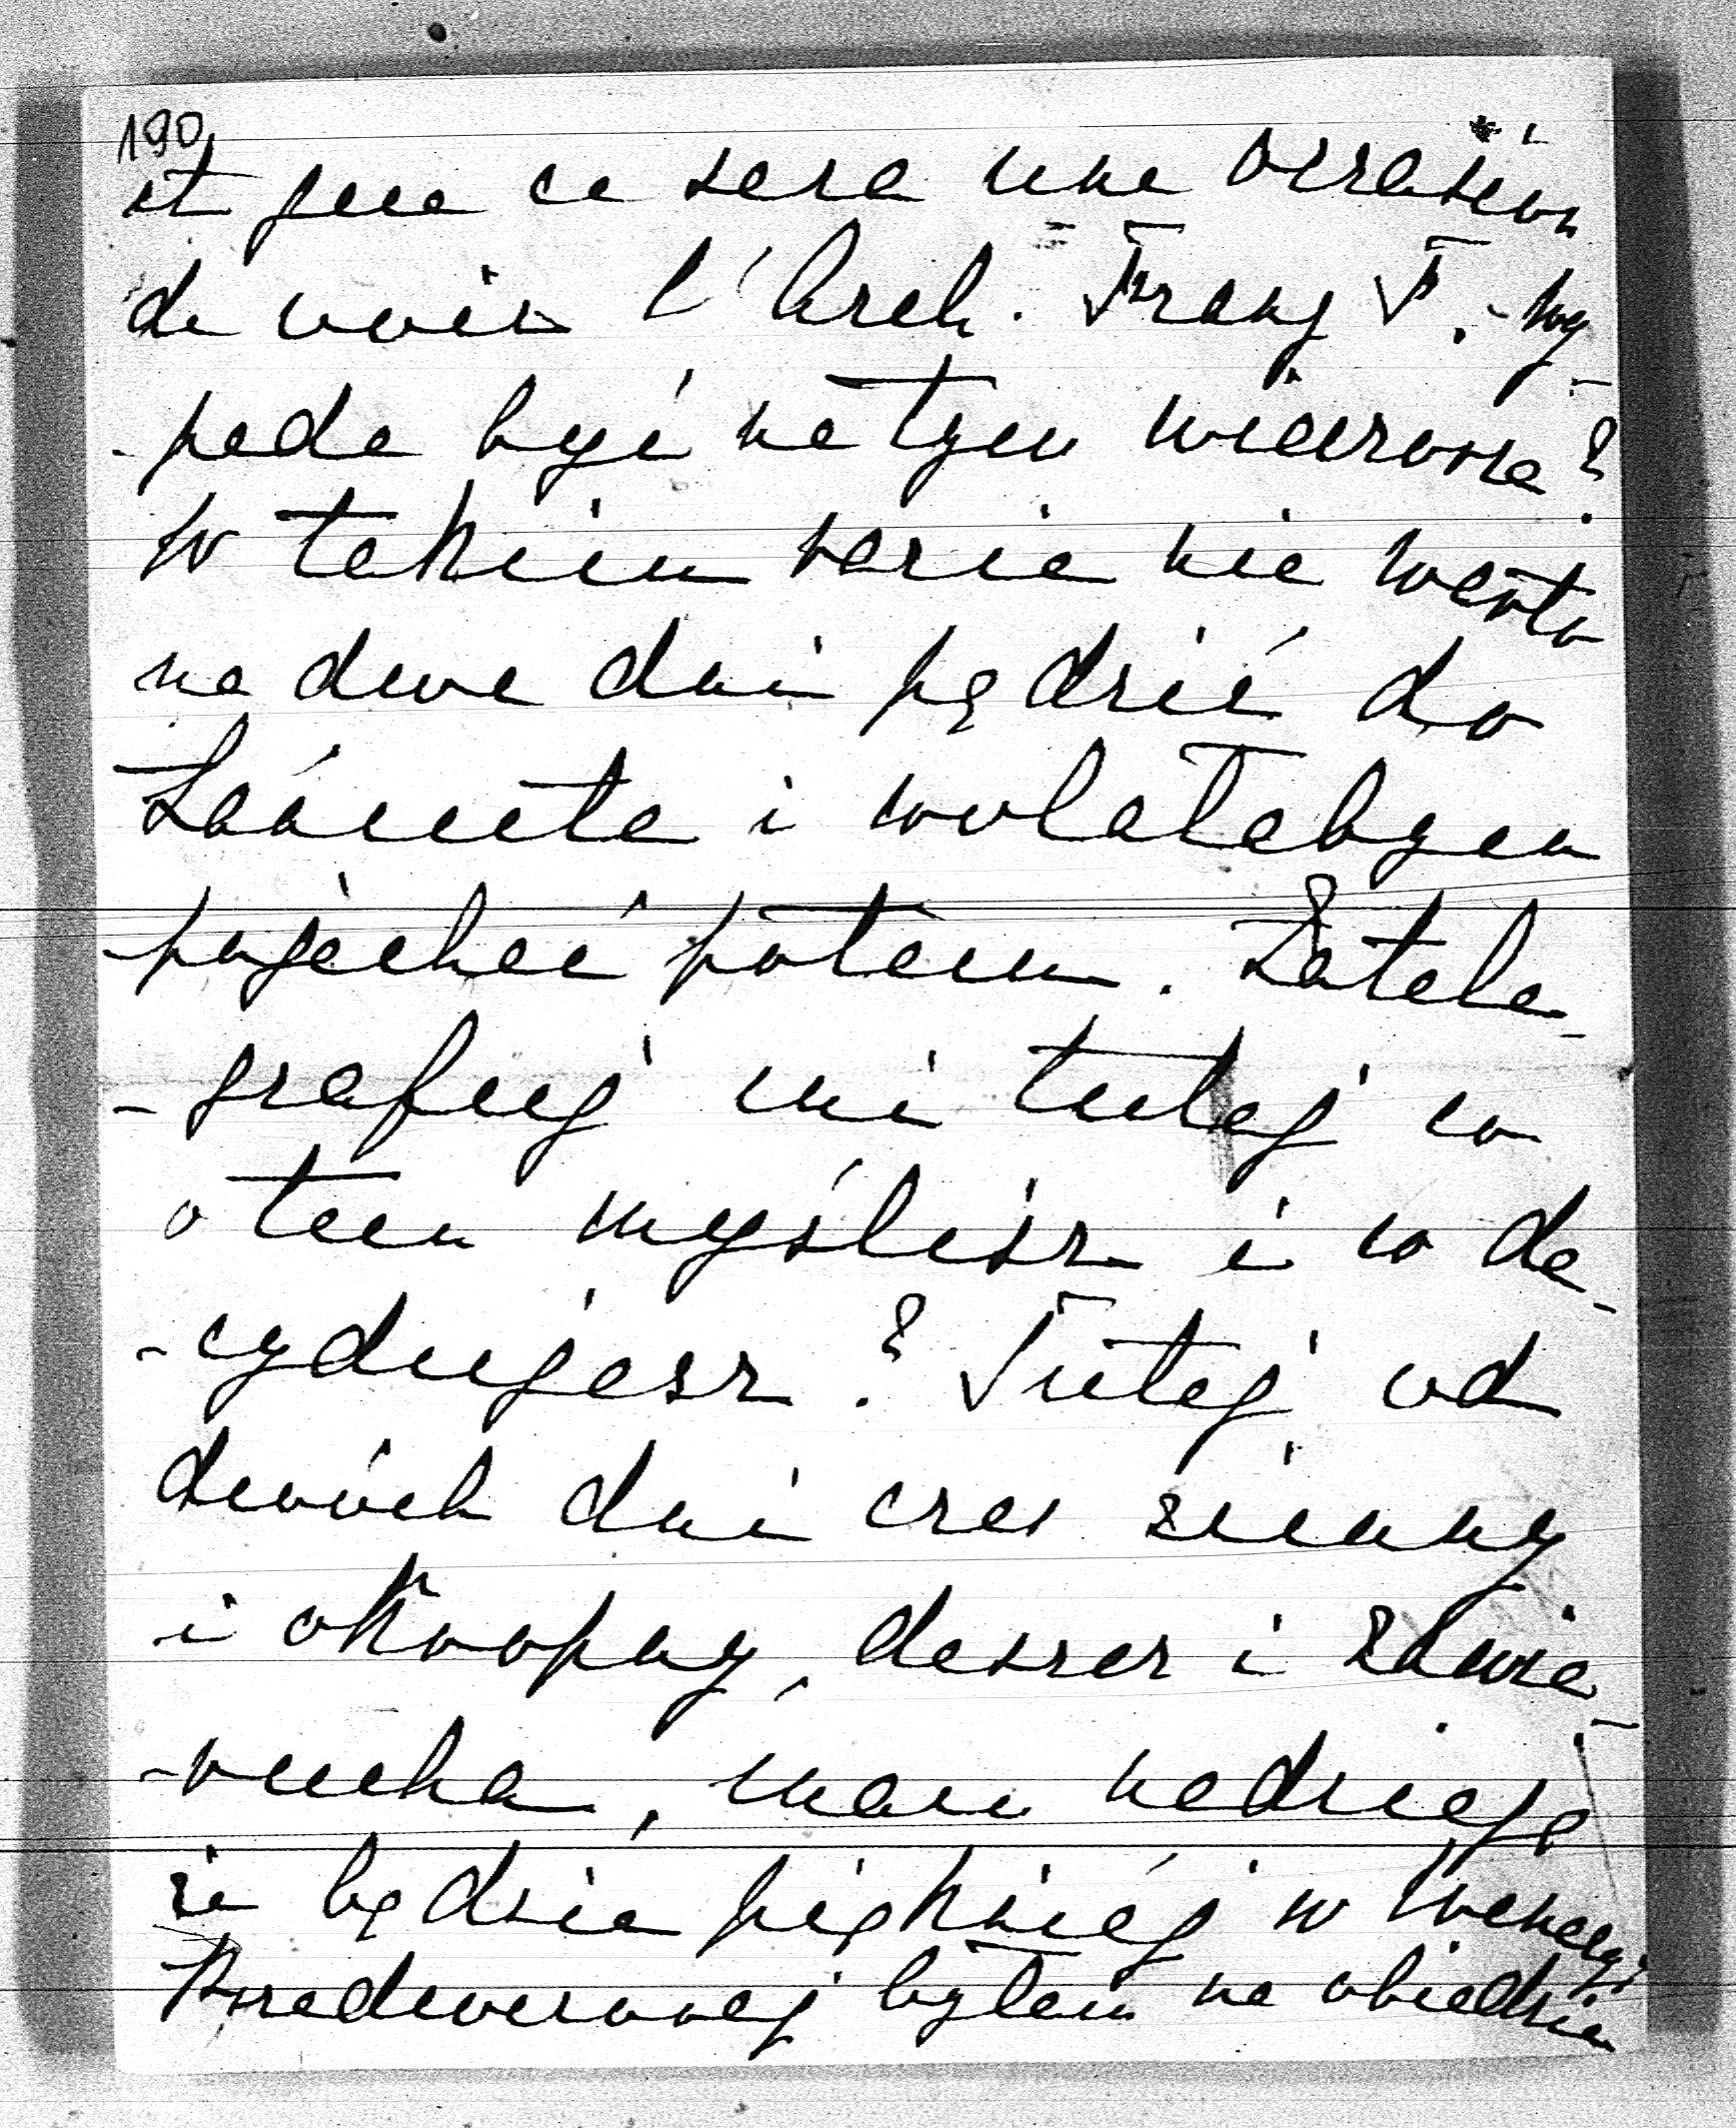 190
et que ce sera une occasion
de voir l'Arch. Franç F. - wy-
-pada być na tym wieczorze?
W takim razie nie warto
na dwa dni pędzić do
Łańcuta i wolałabym
pojechać potem. Zatele-
-grafuj mi tutaj co
o tem myślisz i co de-
-cydujesz? Tutaj od
dwóch dni czas zimny
i okropny, deszcz i zawie-
-rucha, mam nadzieję
że będzie piękniej w Wenecyi
Przedwczoraj byłam na obiedzie